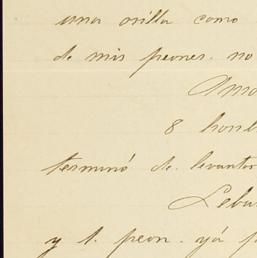 una orilla como
de mis peones. no
8 homb
terminó de levantar
y 1. peon. yá